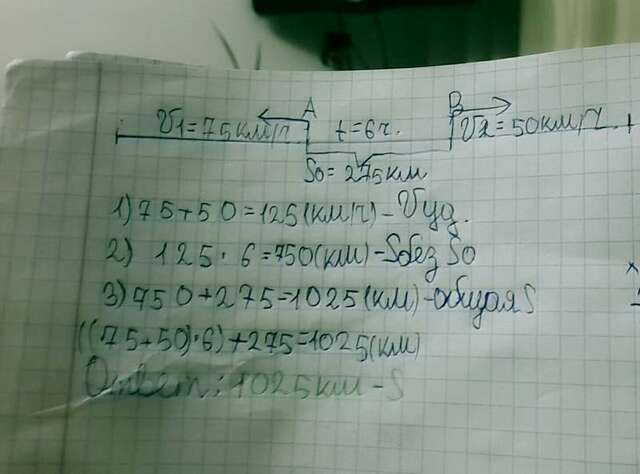 A B
V1=75км/ч t=6ч. V2=50км/ч
S0=275км
1) 75+50=125(км/ч)-Vуд.
2) 125·6=750(км)-Sбез S0
3) 750+275=1025(км)-общая S
((75+50)·6)+275=1025(км)
Ответ: 1025км-S